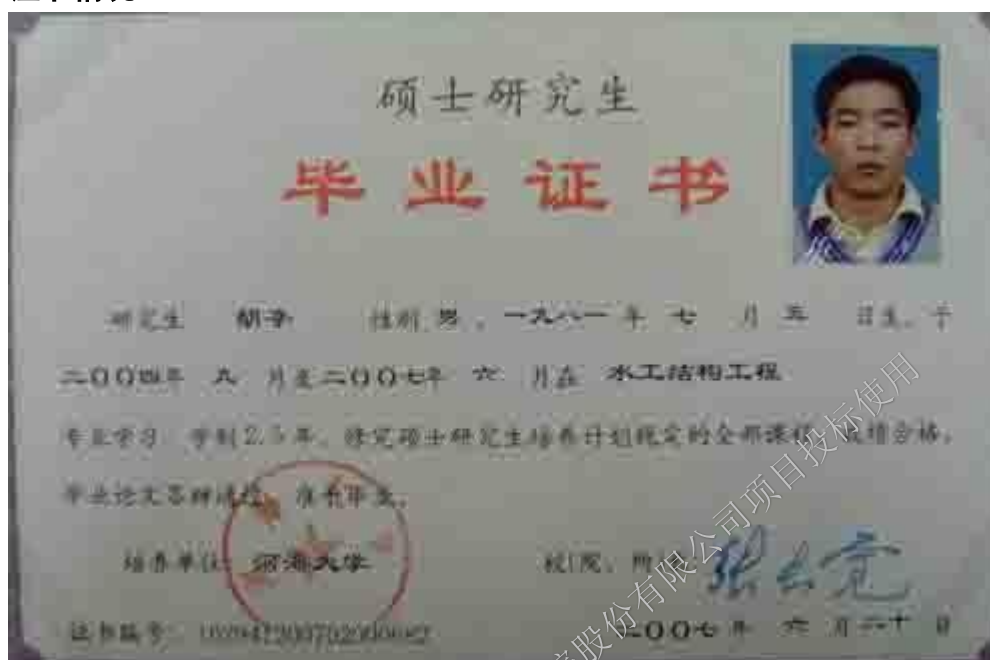 硕士研究生
毕业证书
研究生 胡 性别 男 ，一九八一年 七 月 五 日生，于
二〇〇四年 九 月至二〇〇七年 六 月在 水工结构工程
专业学习，学制2.5年，修完硕士研究生培养计划规定的全部课程，成绩合格，
毕业论文答辩通过，准予毕业。
培养单位：河海大学 校(院、所)长：
证书编号：
二〇〇七年 六 月二十 日
股份有限公司项目投标使用